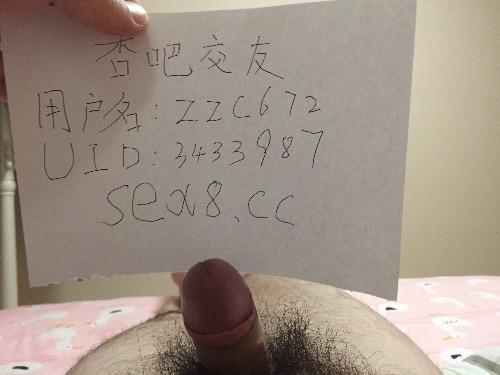 杏吧交友
用户名:zzc672
UID:3433987
sex8.cc